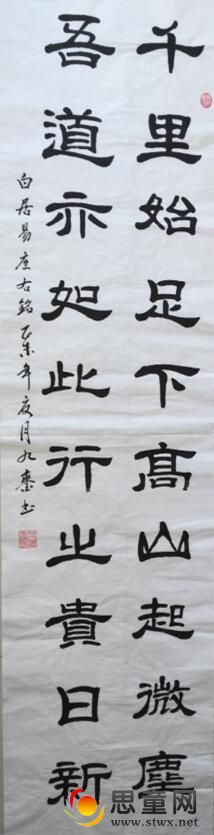 千里始足下高山起微塵
吾道亦如此行之貴日新
白居易座右銘乙未年夏月九
书
思童网
www.stwx.net